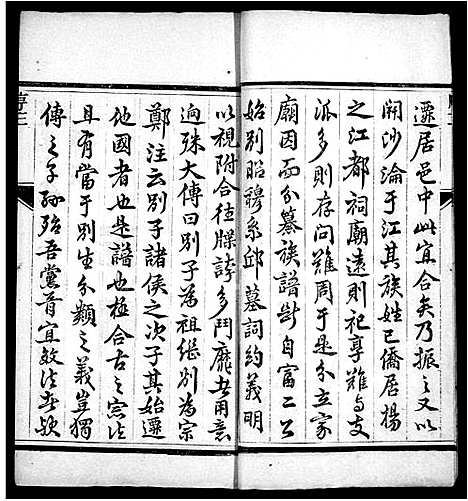 遷居邑中此宜合矣乃振之又以
開沙淪于江其族姓已僑居揚
之江都祠廟遠則祀享難與支
派多則存問難周于是分立家
廟因而分纂族譜斷自富二公
始別昭穆系邱墓詞約義明
以視附合往牒誇多鬥靡者用意
逈殊大傳曰別子為祖繼別為宗
鄭注云別子諸侯之次子其始遷
他國者也是譜也極合古之宗法
且有當于別生分類之義豈獨
傳之子孫殆吾黨首宜效法者歟
序三